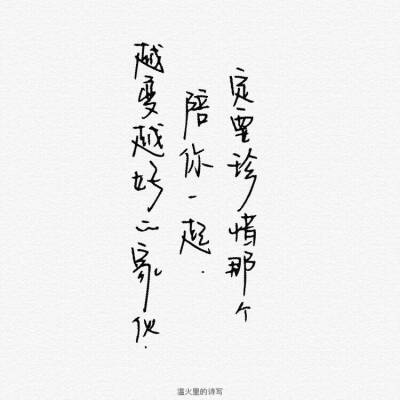 一定要珍惜那个
陪你一起.
越变越好的家伙.
温火里的诗写